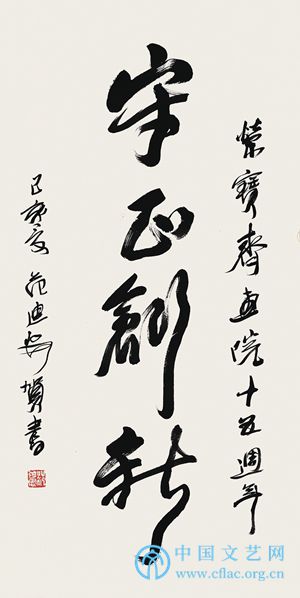 榮寶齋畫院十五週年
守正創新
己亥夏 范迪安賀書
中国文艺网
www.cflac.org.cn